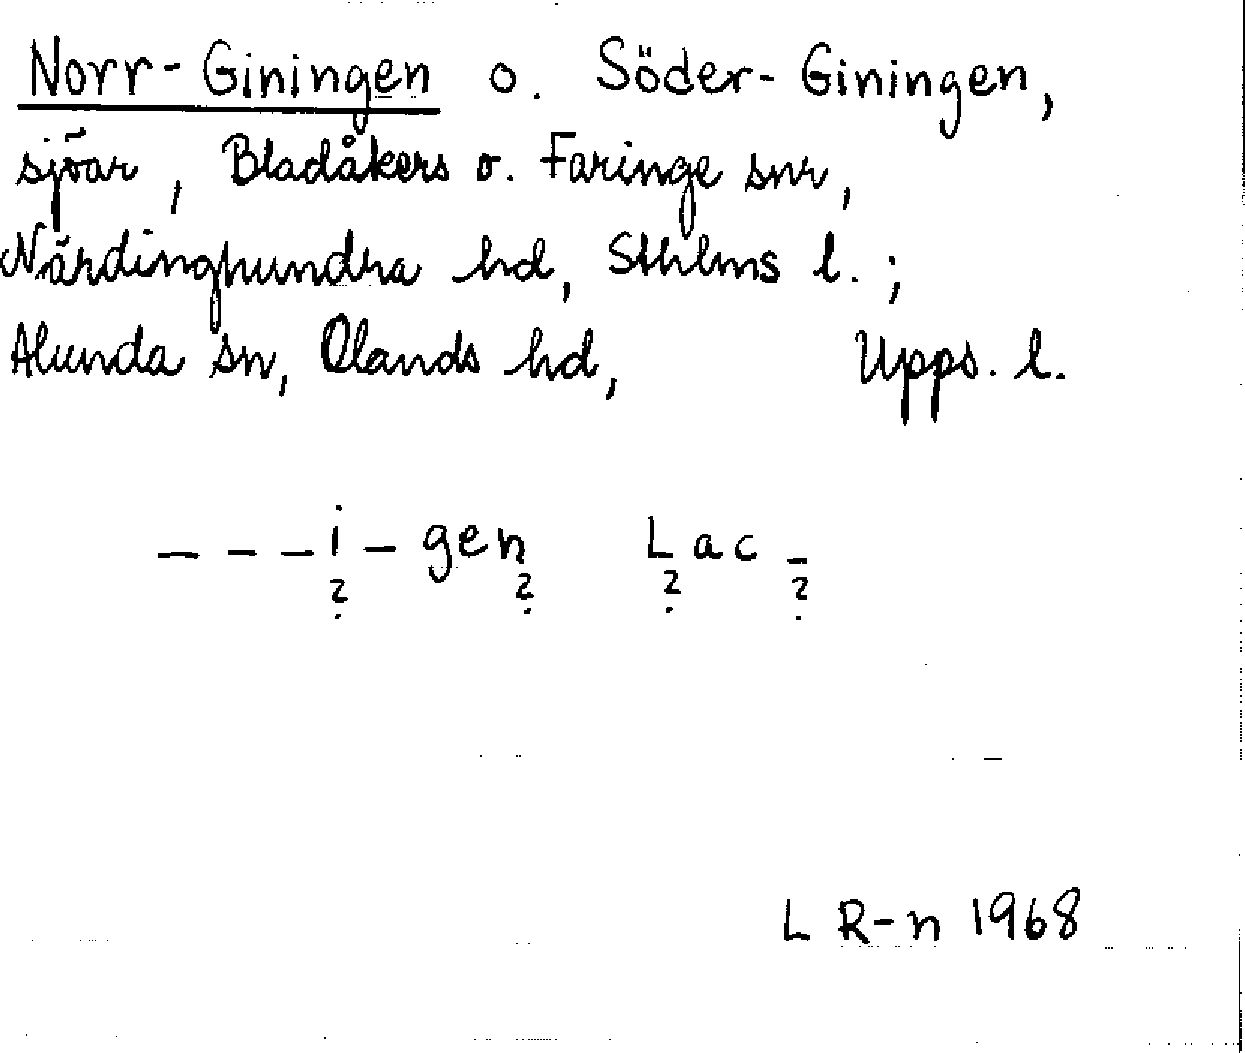 Norr-Giningen o. Söder-Giningen,
sjöar, Bladåkers o. Faringe snr,
Närdinghundra hd, Sthlms l.;
Alunda sn, Olands hd, Upps. l.
– – – i – gen Lac –
? ? ? ?
L R-n 1968